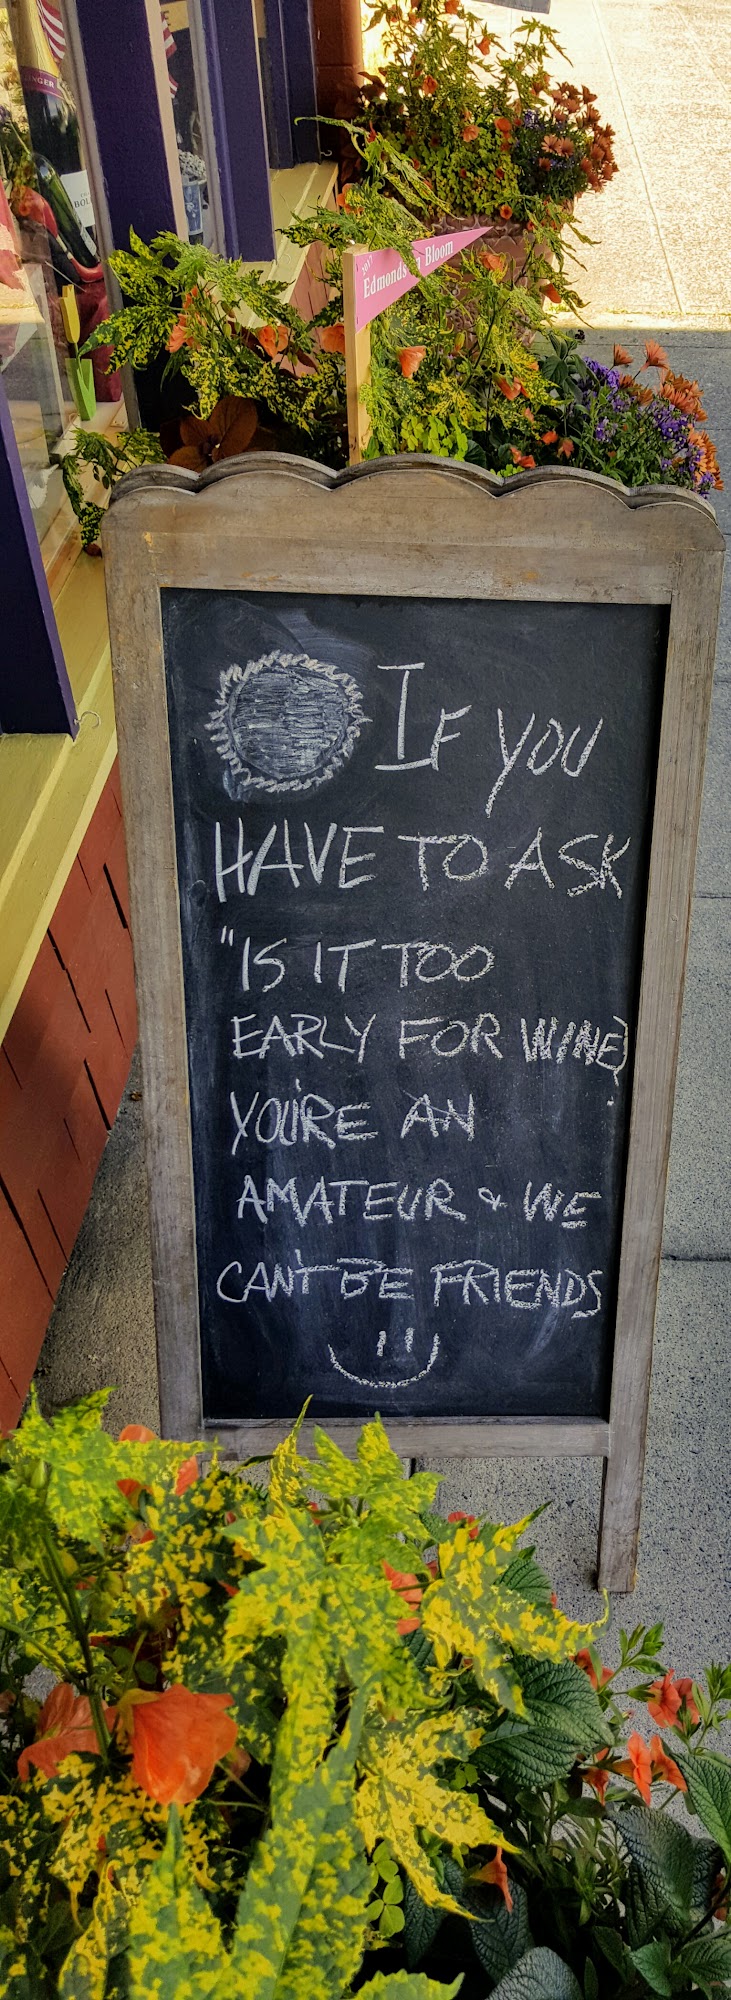 NGER
BOU
2017
Edmonds in Bloom
IF YOU
HAVE TO ASK
"IS IT TOO
EARLY FOR WINE?
YOU'RE AN
AMATEUR & WE
CAN'T BE FRIENDS